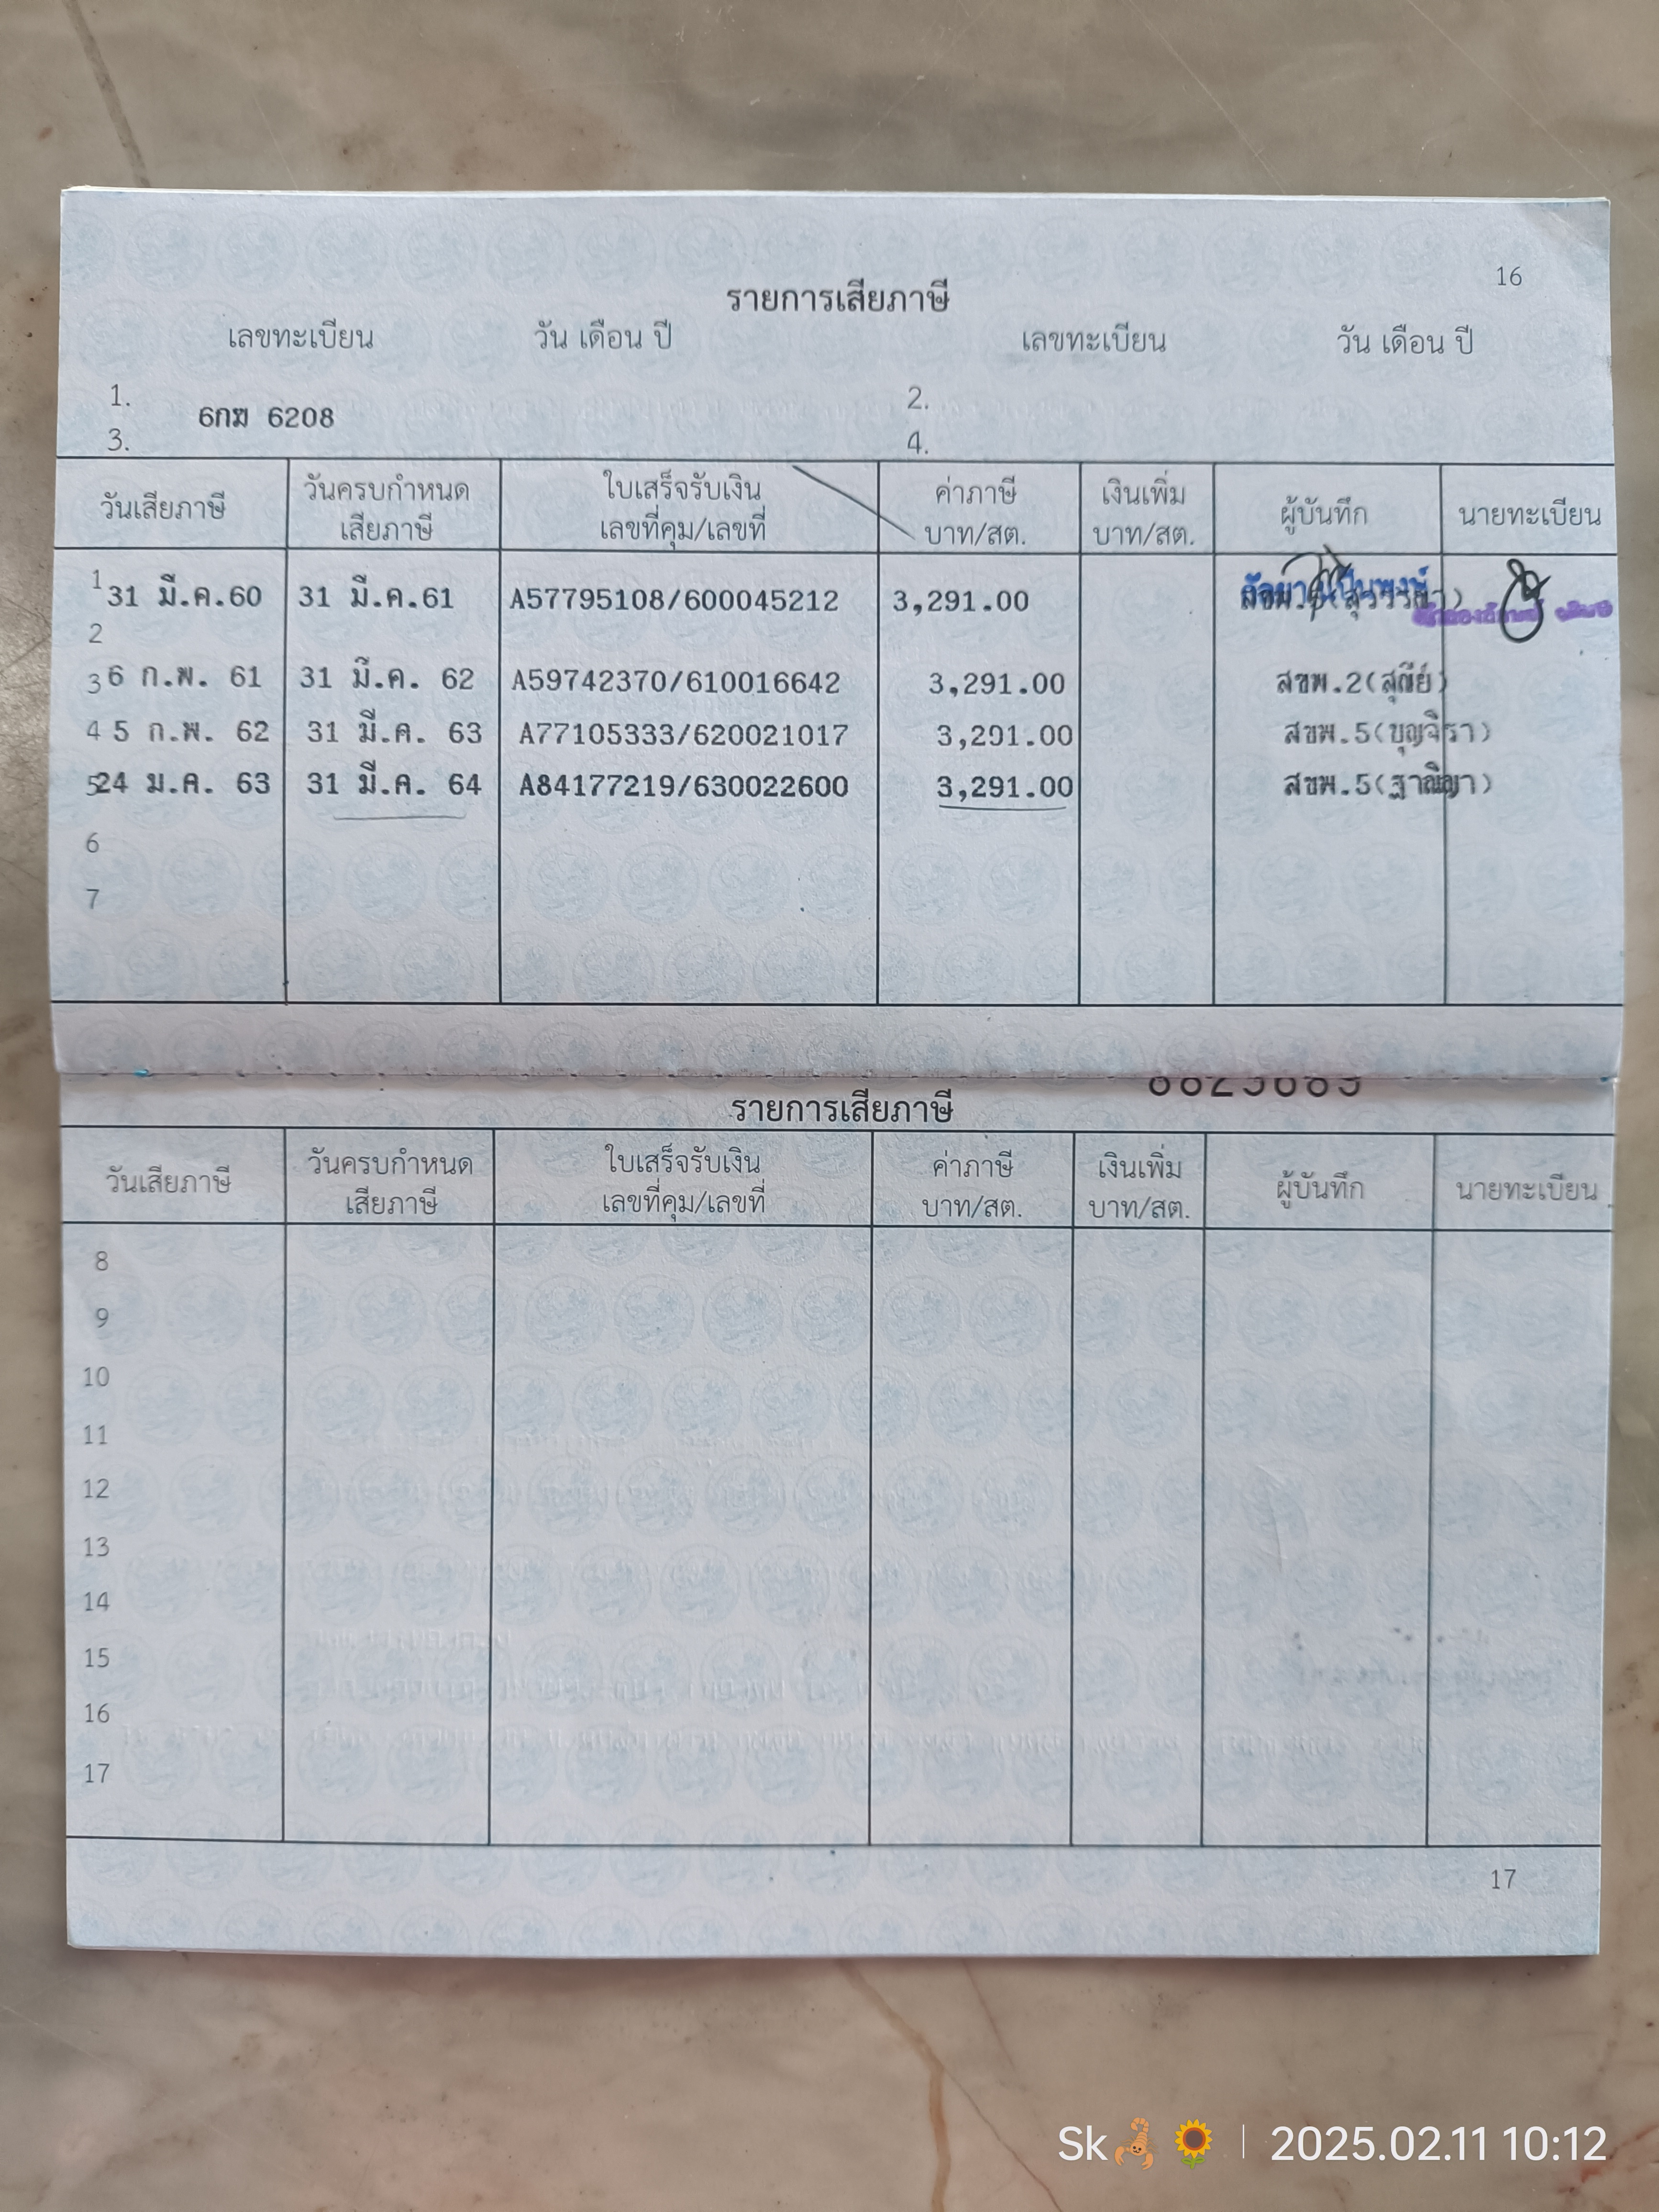 16
รายการเสียภาษี
เลขทะเบียน วัน เดือน ปี เลขทะเบียน วัน เดือน ปี
1. 2.
6กฆ 6208
3. 4.
วันเสียภาษี วันครบกำหนด เสียภาษี ใบเสร็จรับเงิน เลขที่คุม/เลขที่ ค่าภาษี บาท/สต. เงินเพิ่ม บาท/สต. ผู้บันทึก นายทะเบียน
1 31 มี.ค.60 31 มี.ค.61 A57795108/600045212 3,291.00
2
3 6 ก.พ. 61 31 มี.ค. 62 A59742370/610016642 3,291.00 สขพ.2(สุณีย์)
4 5 ก.พ. 62 31 มี.ค. 63 A77105333/620021017 3,291.00 สขพ.5(บุญจิรา)
5 24 ม.ค. 63 31 มี.ค. 64 A84177219/630022600 3,291.00 สขพ.5(ฐาณิญา)
6
7
รายการเสียภาษี
วันเสียภาษี วันครบกำหนด เสียภาษี ใบเสร็จรับเงิน เลขที่คุม/เลขที่ ค่าภาษี บาท/สต. เงินเพิ่ม บาท/สต. ผู้บันทึก นายทะเบียน
8
9
10
11
12
13
14
15
16
17
17
Sk 2025.02.11 10:12